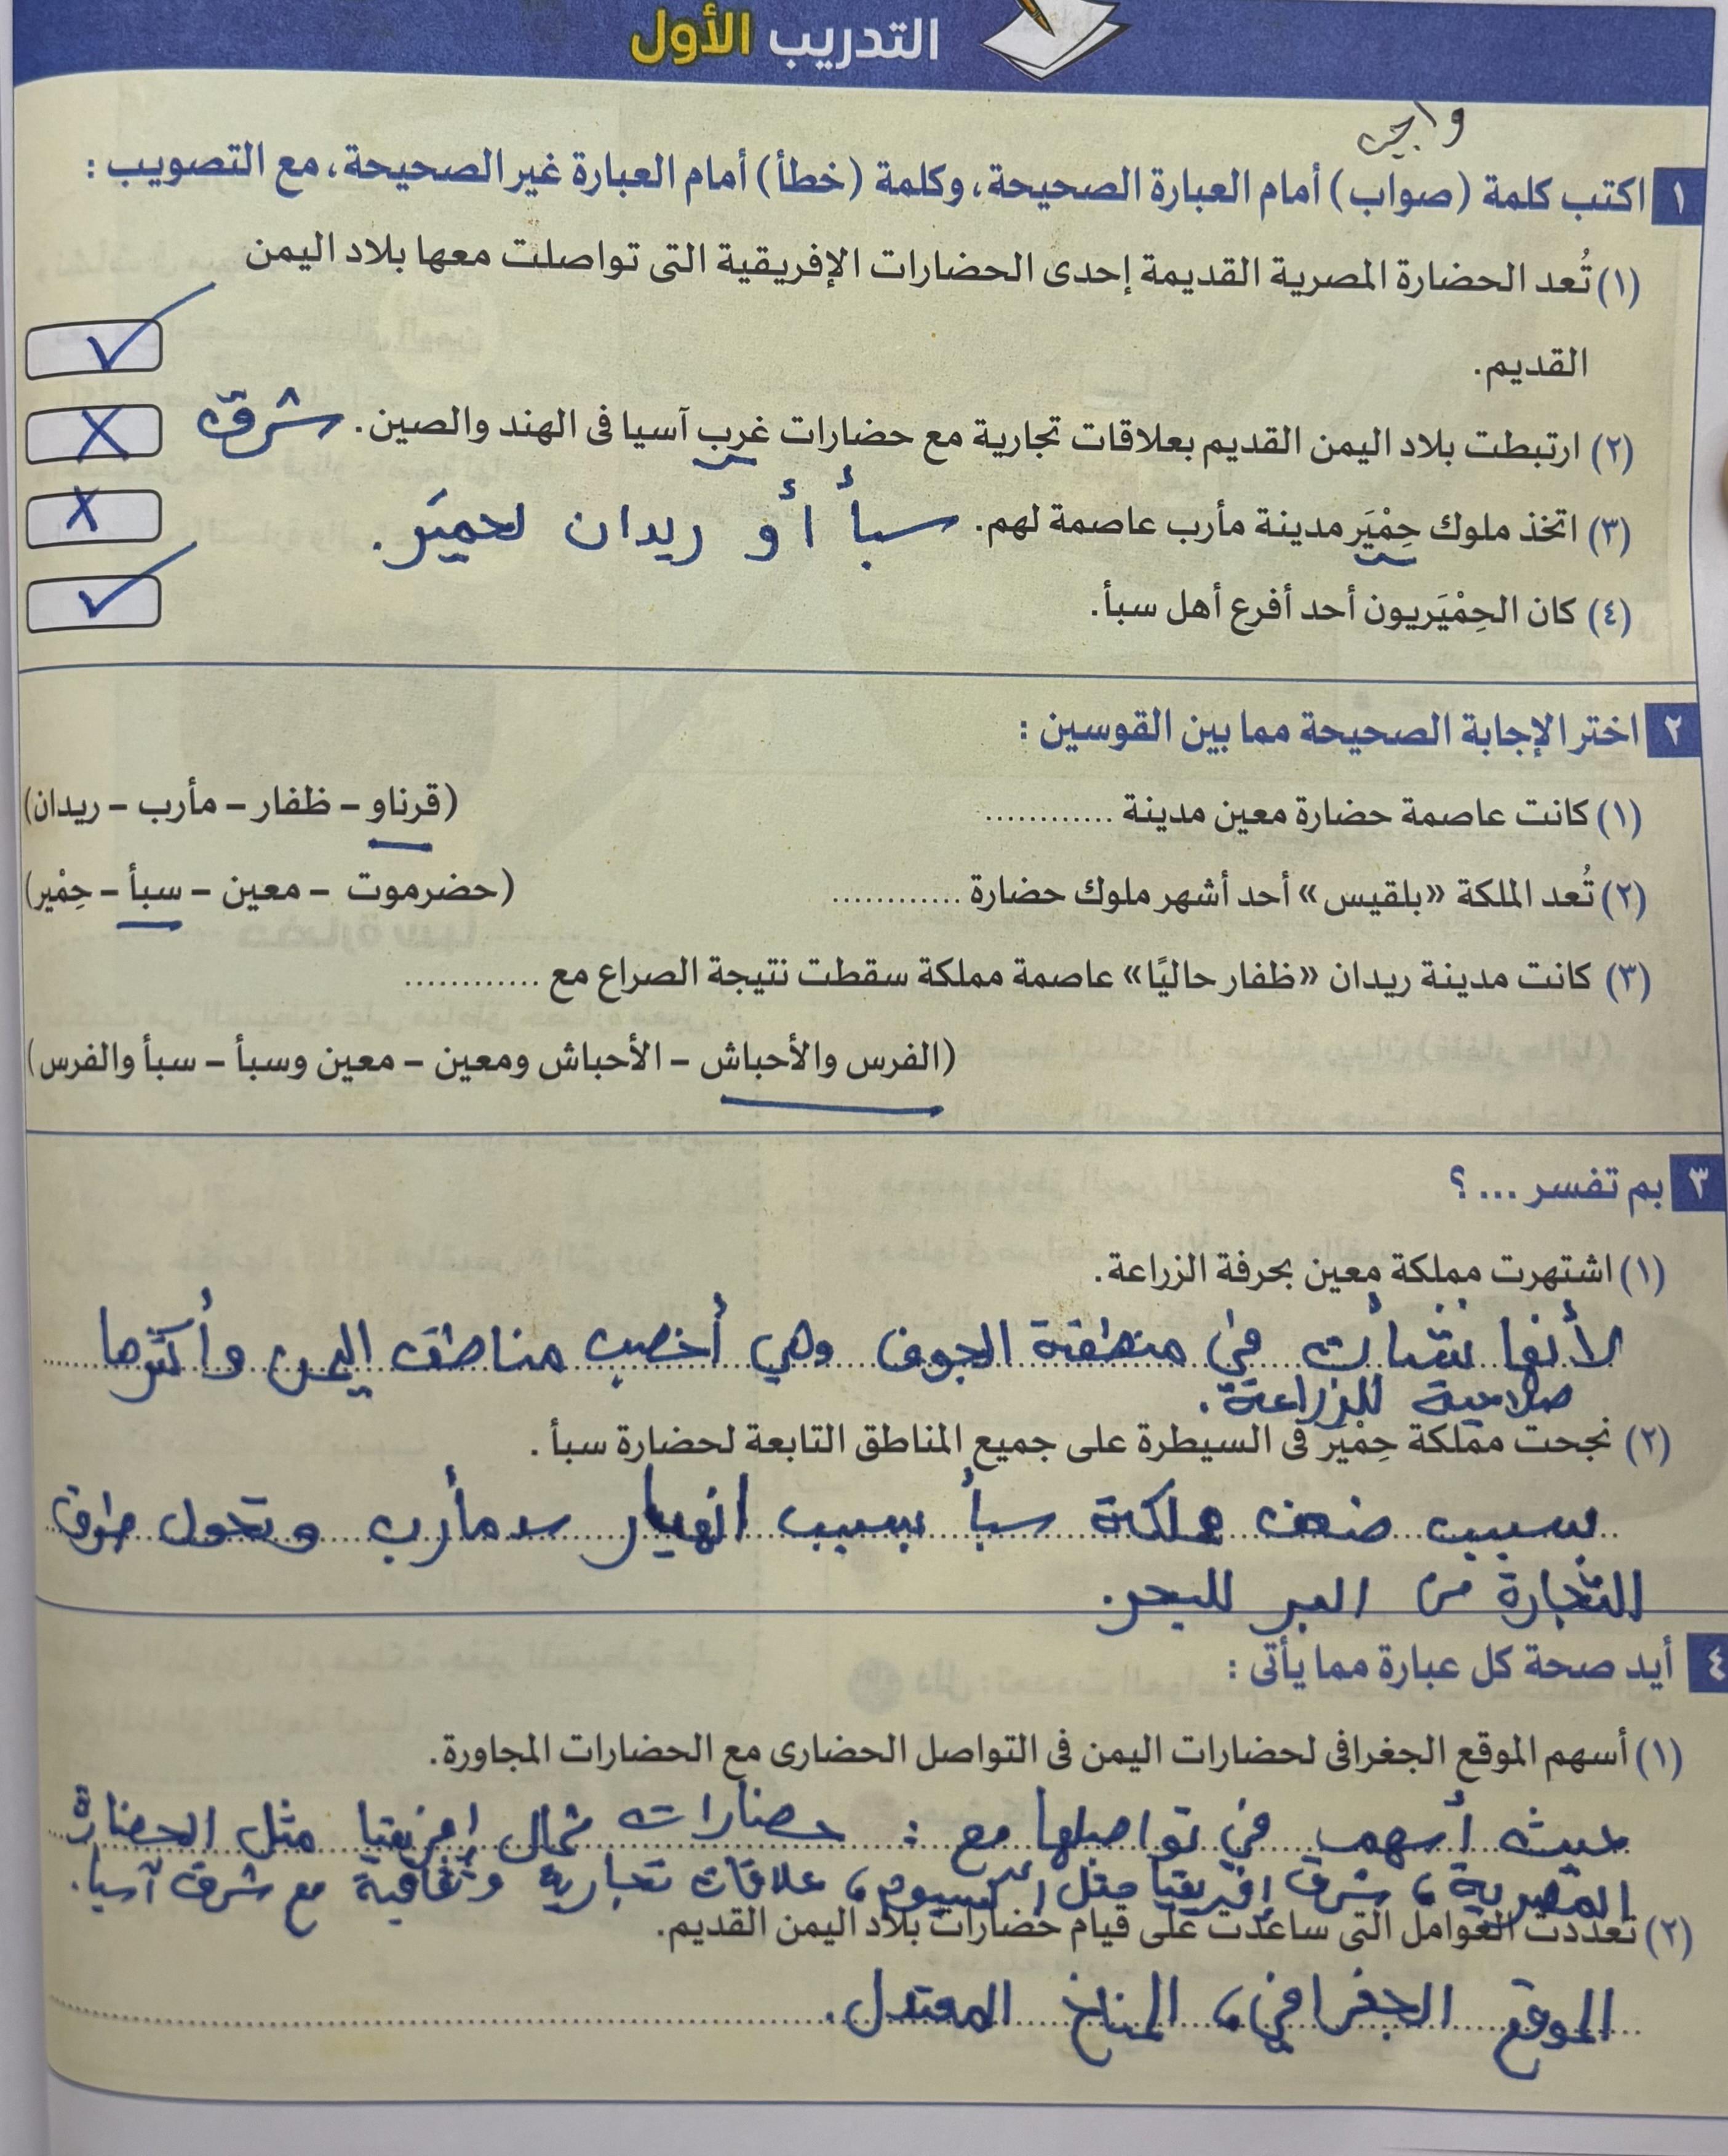 التدريب الأول
واجب
١ اكتب كلمة (صواب) أمام العبارة الصحيحة، وكلمة (خطأ) أمام العبارة غير الصحيحة، مع التصويب :
(١) تُعد الحضارة المصرية القديمة إحدى الحضارات الإفريقية التى تواصلت معها بلاد اليمن
القديم. ✓
(٢) ارتبطت بلاد اليمن القديم بعلاقات تجارية مع حضارات غرب آسيا فى الهند والصين. شرق X
(٣) اتخذ ملوك حِمْيَر مدينة مأرب عاصمة لهم. سبأ أو ريدان لحميَر. X
(٤) كان الحِمْيَريون أحد أفرع أهل سبأ. ✓
٢ اختر الإجابة الصحيحة مما بين القوسين :
(١) كانت عاصمة حضارة معين مدينة ............ (قرناو – ظفار – مأرب – ريدان)
(٢) تُعد الملكة «بلقيس» أحد أشهر ملوك حضارة ............ (حضرموت – معين – سبأ – حِمْير)
(٣) كانت مدينة ريدان «ظفار حاليًا» عاصمة مملكة سقطت نتيجة الصراع مع ............
(الفرس والأحباش – الأحباش ومعين – معين وسبأ – سبأ والفرس)
٣ بم تفسر ... ؟
(١) اشتهرت مملكة معين بحرفة الزراعة.
لأنها نشأت في منطقة الجوف وهي أخصب مناطق اليمن وأكثرها
صلاحية للزراعة.
(٢) نجحت مملكة حِمْيَر فى السيطرة على جميع المناطق التابعة لحضارة سبأ.
بسبب ضعف مملكة سبأ بسبب انهيار سد مأرب وتحول طرق
التجارة من البر للبحر.
٤ أيد صحة كل عبارة مما يأتى :
(١) أسهم الموقع الجغرافى لحضارات اليمن فى التواصل الحضارى مع الحضارات المجاورة.
حيث أسهم في تواصلها مع : حضارات شمال إفريقيا مثل الحضارة
المصرية، شرق إفريقيا مثل أكسيوم، علاقات تجارية وثقافية مع شرق آسيا.
(٢) تعددت العوامل التى ساعدت على قيام حضارات بلاد اليمن القديم.
الموقع الجغرافي، المناخ المعتدل.